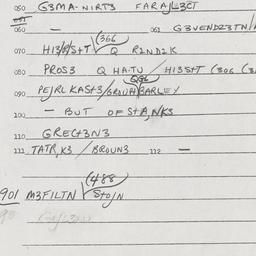 050 G3MA-NIRT3 FARAJL3CT
060 — 061 G3VEND23TN/
(366
070 HI3/P/S+T Q R2ND2K
080 PROS3 Q HA-TU / HI3S+T (306 (3
Q86
090 PEJRL KAS+3/GROUH BARLEY
100 — BUT OFS+A,NKS
110 GREC+3N3
111 TATR,K3 / BROUN3 112 —
(488
901 M3FILTN S+O/N